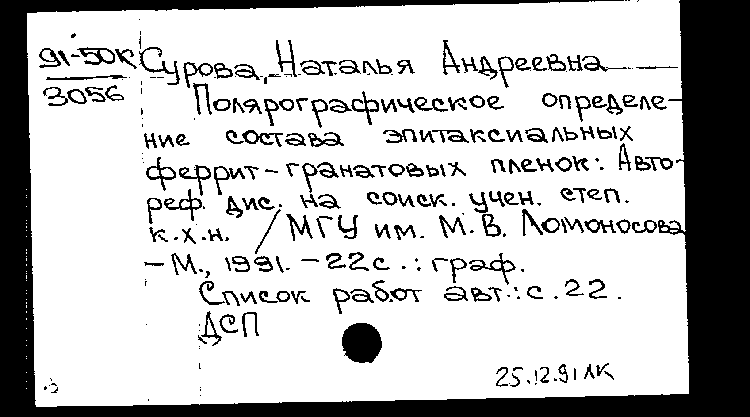 91-50К
3056
Сурова, Наталья Андреевна
Полярографическое определе-
ние состава эпитаксиальных
феррит-гранатовых пленок: Авто-
реф. дис. на соиск. учен. степ.
к.х.н. / МГУ им. М.В. Ломоносова
– М., 1991. – 22 с.: граф.
Список работ авт.: с. 22.
ДСП
25.12.91 ЛК